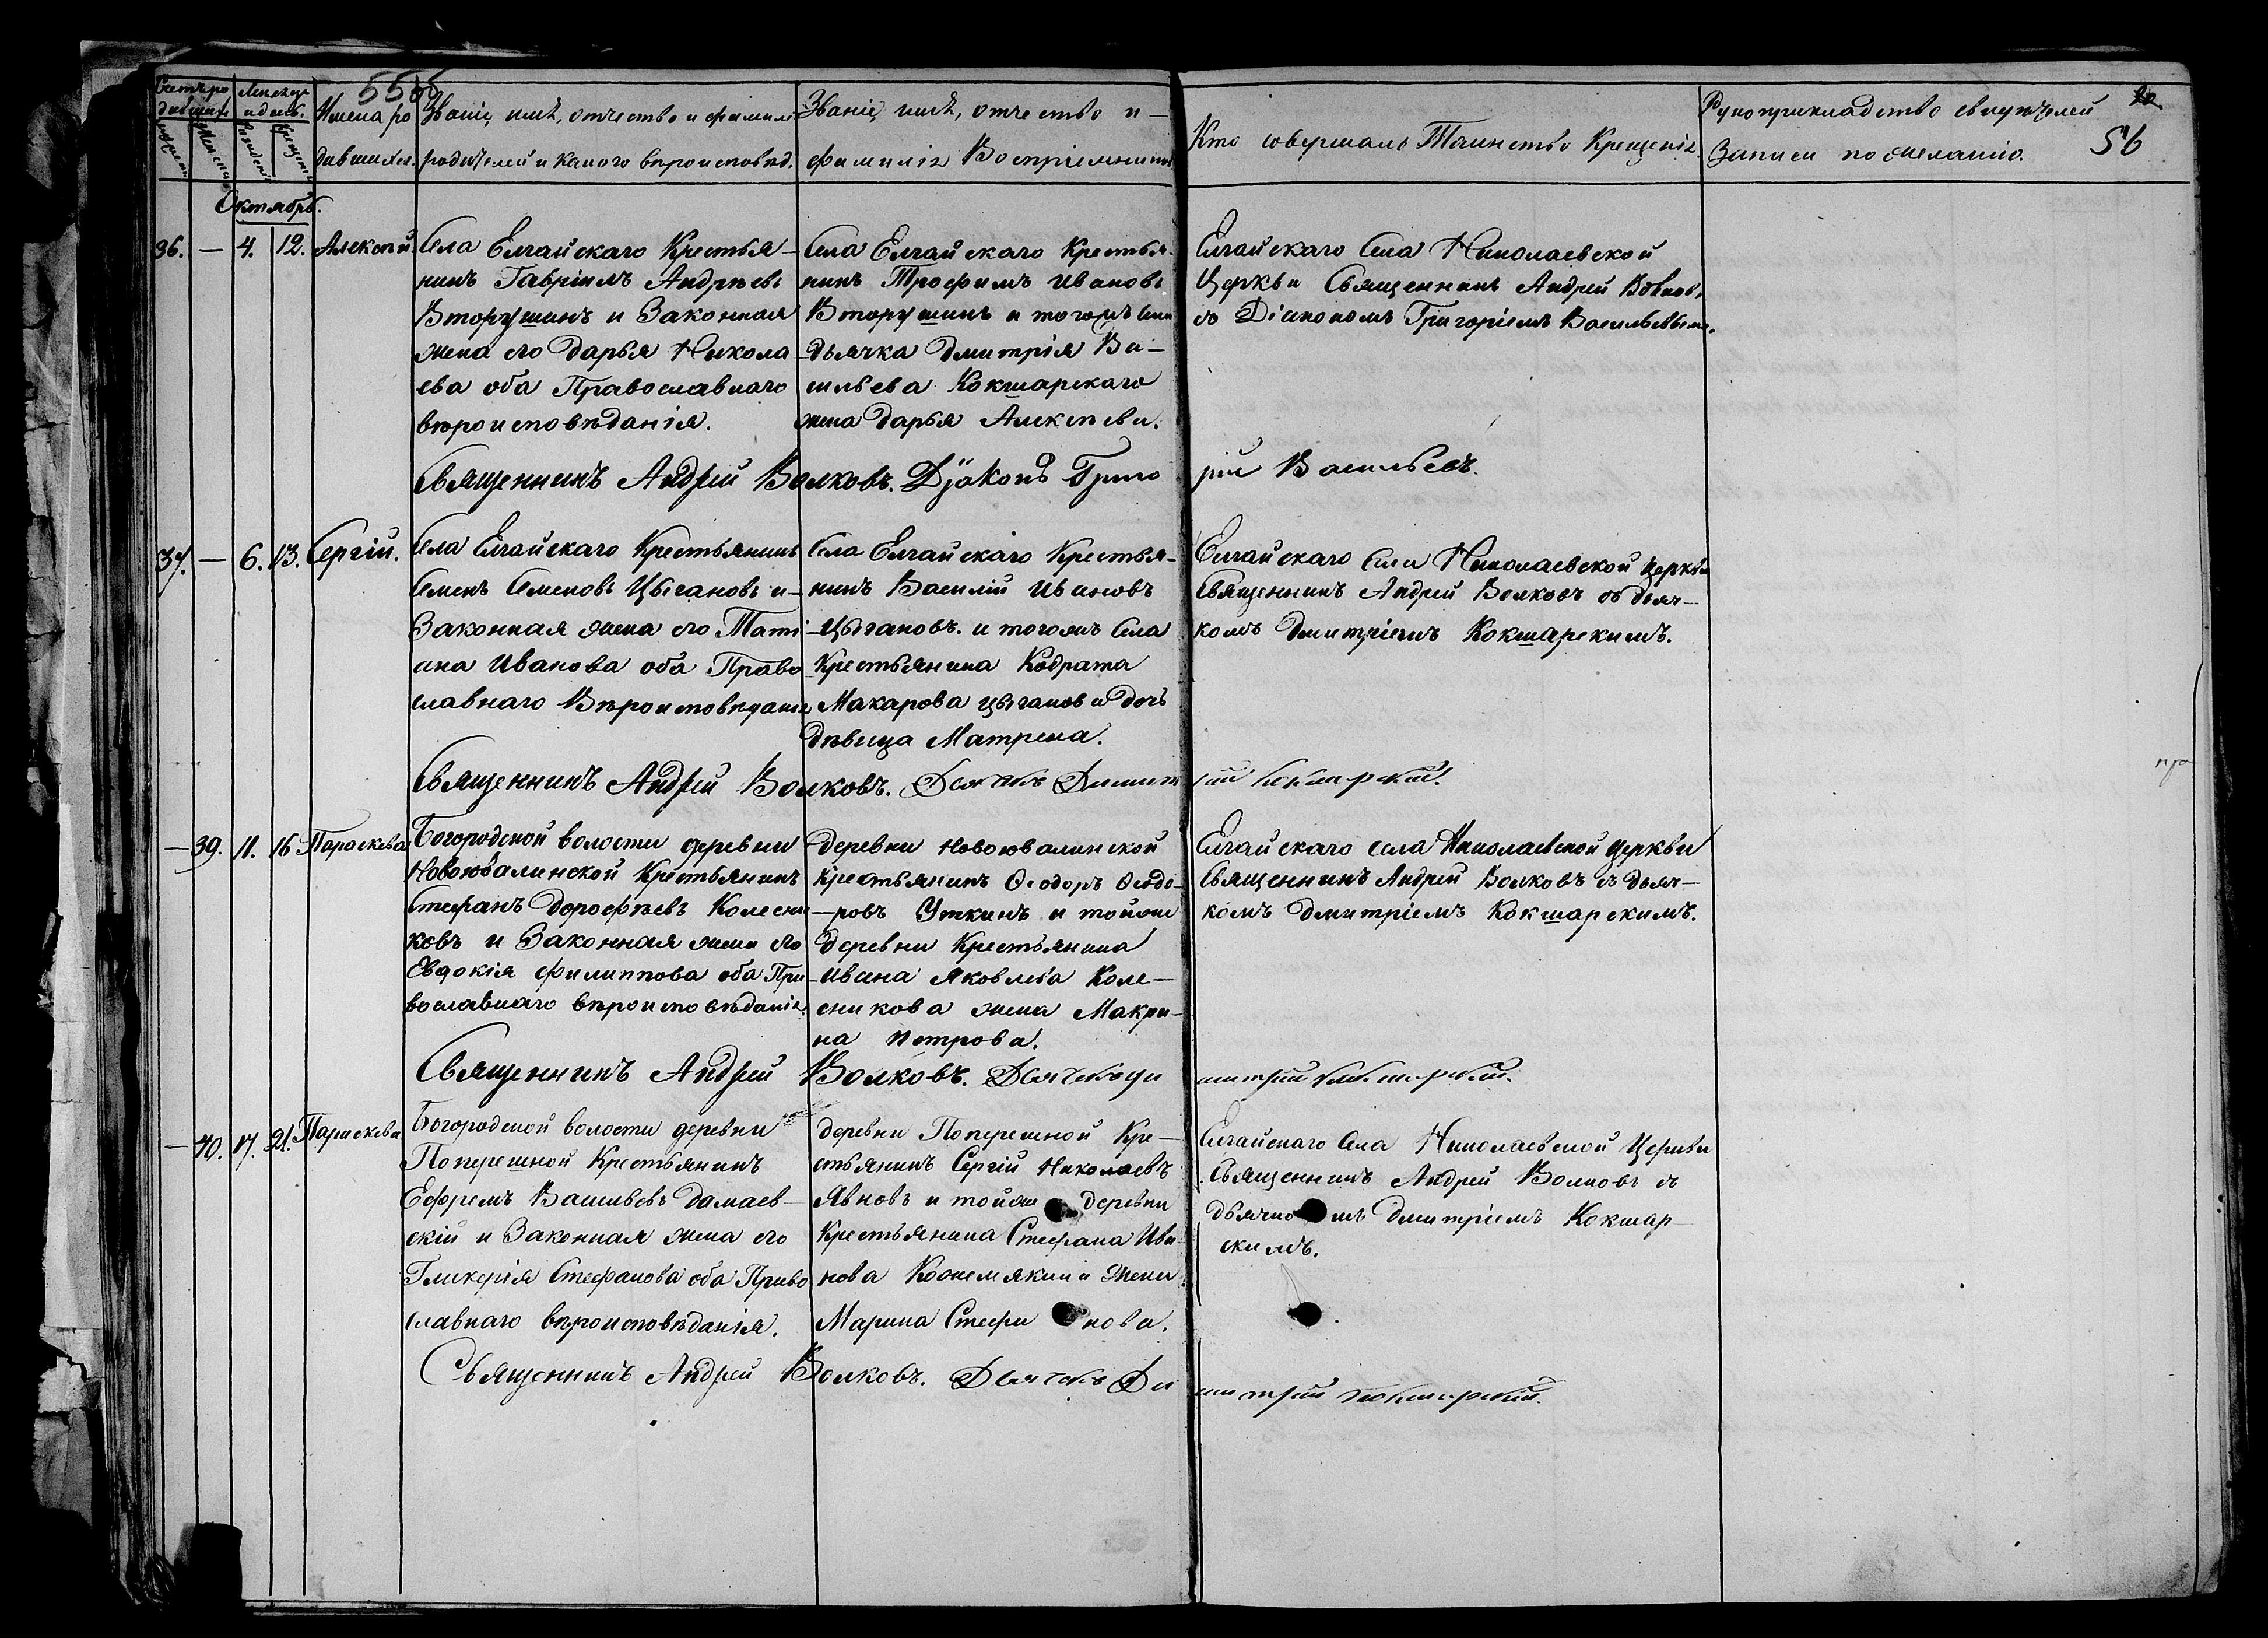 555
Счетъ ро
дившихся
Мѣсяцъ
и день.
Имена ро
дившихся.
Званіе, имя, отчество и фамилія
родителей и какого вѣроисповѣд.
Званіе, имя, отчество и —
фамилія Воспріемниковъ
Кто совершалъ Таинство Крещенія.
Рукоприкладство свидѣтелей
Записи по желанію.
56
Октябрь.
36. — 4. 12. Алексѣй.
Села Елгайскаго Крестья—
нинъ Гавріилъ Андреевъ
Вторушинъ и Законная
жена его Дарья Никола
ева оба Православнаго
вѣроисповѣданія.
Села Елгайскаго Крестья
нинъ Трофимъ Ивановъ
Вторушинъ и тогожъ села
дьячка Дмитрія Ва—
сильева Кокшарскаго
жена Дарья Алексѣева.
Елгайскаго Села Николаевской
Церкви Священникъ Андрей Волковъ
съ Діакономъ Григоріемъ Васильевымъ.
Священникъ Андрей Волковъ. Дїаконъ Григо
рій Васильевъ.
37. — 6. 13. Сергій.
Села Елгайскаго Крестьянинъ
Семенъ Семеновъ Цыгановъ и—
Законная жена его Тати
ана Иванова оба Право
славнаго Вѣроисповѣданія
Села Елгайскаго Крестья—
нинъ Василій Ивановъ
Цыгановъ. и тогожъ Села
Крестьянина Кодрата
Макарова Цыганова дочь
дѣвица Матрена.
Елгайскаго Села Николаевской Церкви
Священникъ Андрей Волковъ съ дьяч—
комъ Дмитріемъ Кокшарскимъ.
Священникъ Андрей Волковъ. Дьячекъ Димит
рій Кокшарскій.
— 39. 11. 16 Параскева
Богородской волости деревни
Новоювалинской Крестьянинъ
Стефанъ Дорофѣевъ Колесни
ковъ и Законная жена его
Евдокія Филиппова оба Пра
вославнаго вѣроисповѣданія.
Деревни Новоювалинской
Крестьянинъ Ѳеодоръ Ѳеодо—
—ровъ Уткинъ и тойже
деревни Крестьянина
Ивана Яковлева Коле—
сникова жена Макри—
на Петрова.
Елгайскаго села Николаевской церкви
Священникъ Андрей Волковъ съ дьяч—
комъ Дмитріемъ Кокшарскимъ.
Священникъ Андрей Волковъ. Дьячекъ Ди
митрій Кокшарскій.
— 40. 17. 21. Параскева
Богородской волости деревни
Поперешной Крестьянинъ
Ефремъ Васильевъ Дамаев—
скій и Законная жена его
Гликерія Стефанова оба Право
славнаго вѣроисповѣданія.
деревни Поперешной Кре—
стьянинъ Сергій Николаевъ
Явновъ и тойже деревни
Крестьянина Стефана Ива
нова Кожемякина жена
Марина Стефанова.
Елгайскаго Села Николаевской Церкви
Священникъ Андрей Волковъ съ
дьячкомъ Дмитріемъ Кокшар—
скимъ.
Священникъ Андрей Волковъ. Дьячекъ Ди
митрій Кокшарскій.